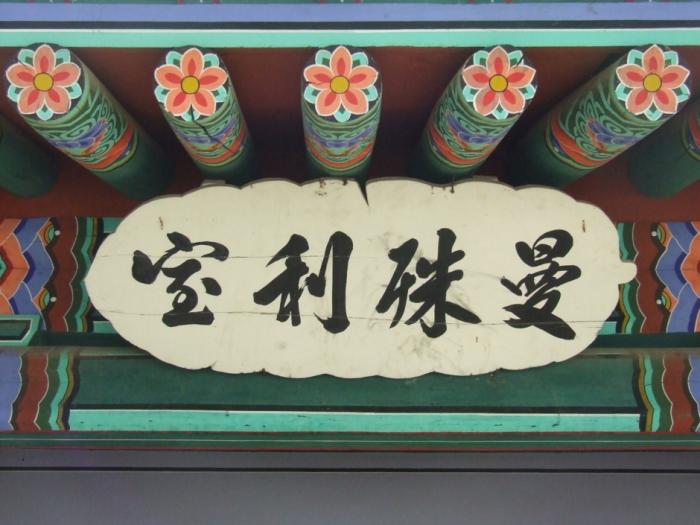 曼殊利室